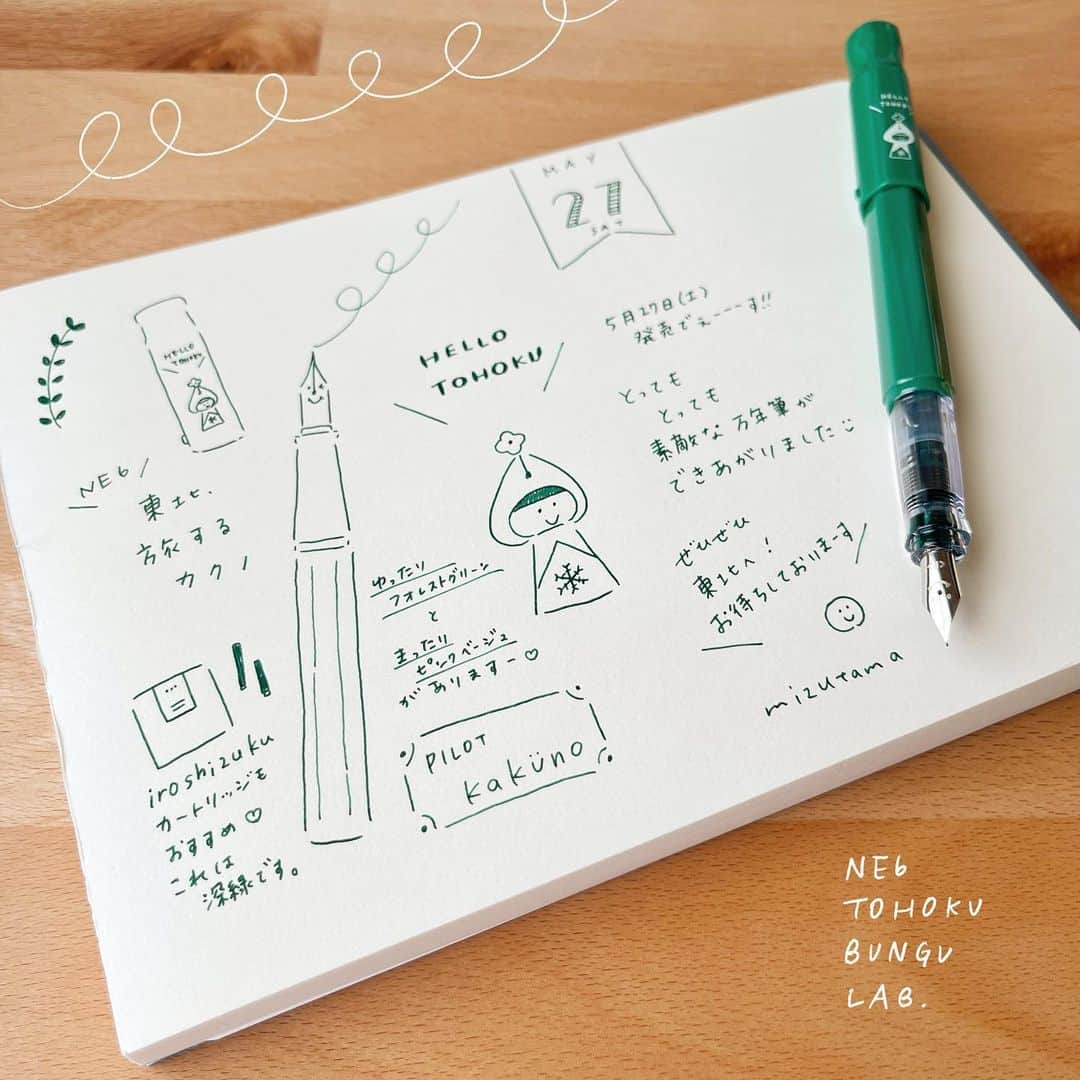 MAY
27
SAT
HELLO
TOHOKU
HELLO
TOHOKU
HELLO
TOHOKU
5月27日(土)
発売でぇーーーす!!
とっても
とっても
素敵な万年筆が
できあがりました
NE6
東北、
旅する
カクノ
ゆったり
フォレストグリーン
と
まったり
ピンクベージュ
がありますー♡
ぜひぜひ
東北へ!
お待ちしておりまーす
mizutama
iroshizuku
カートリッジも
おすすめ♡
これは
深緑です。
PILOT
kaküno
NE6
TOHOKU
BUNGU
LAB.